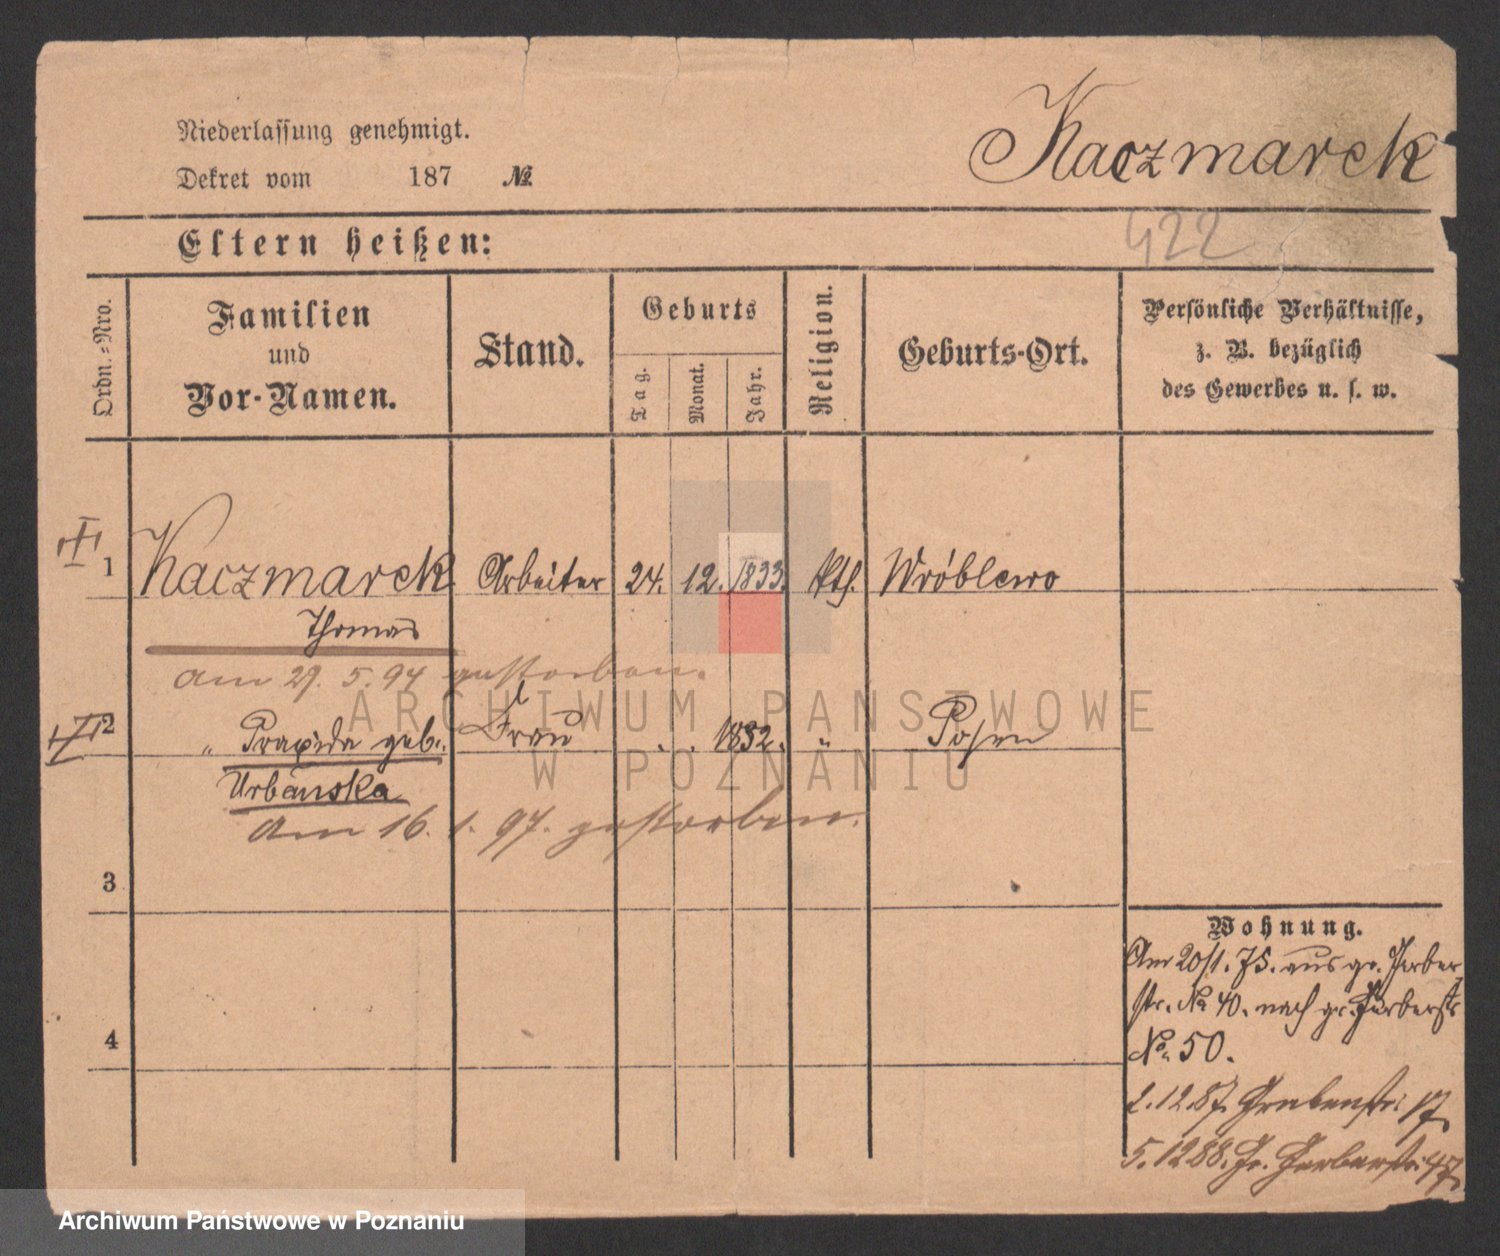 Niederlassung genehmigt.
Dekret vom 187 №
Kaczmarek
422
Eltern heißen:
Ordn.-Nro.
Familien
und
Vor-Namen.
Stand.
Geburts
Tag.
Monat.
Jahr.
Religion.
Geburts-Ort.
Persönliche Verhältnisse,
z. B. bezüglich
des Gewerbes u. s. w.
1 Kaczmarek Arbeiter 24. 12. 1833. kth. Wróblewo
Thomas
am 29. 5. 94 gestorben.
2 " Praxeda geb. Frau . . 1832. " Posen
Urbańska
Am 16. 1. 97. gestorben.
3
4
Wohnung.
Am 20/1. 75. aus gr. Gerber
str. No 40. nach gr. Gerberstr
No. 50.
2.12.87. Grabenstr. 17.
5.12 88. Gr. Gerberstr. 47.
ARCHIWUM PAŃSTWOWE
W POZNANIU
Archiwum Państwowe w Poznaniu